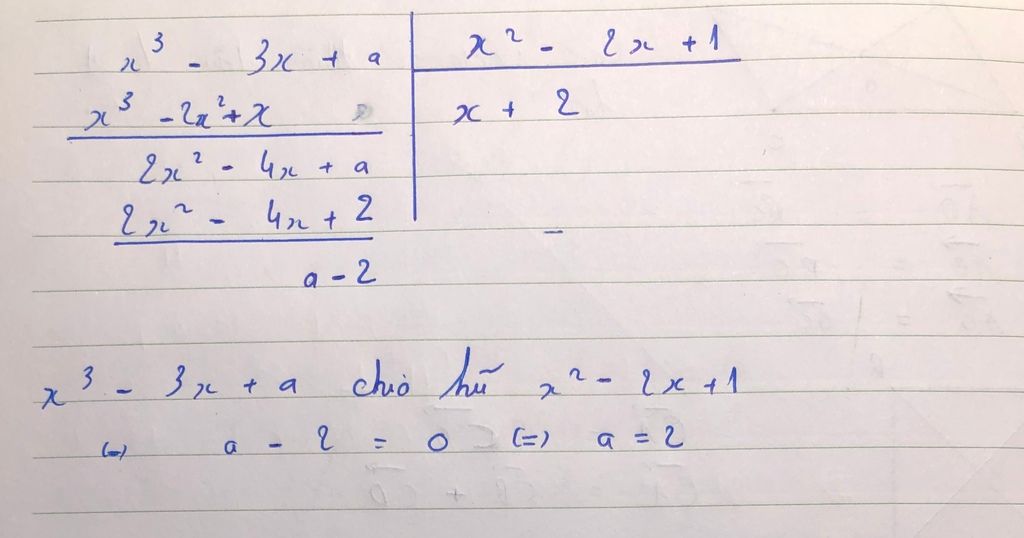 x³ - 3x + a | x² - 2x + 1
x³ - 2x² + x | x + 2
2x² - 4x + a
2x² - 4x + 2
a - 2
x³ - 3x + a chia hết x² - 2x + 1
(=) a - 2 = 0 (=) a = 2